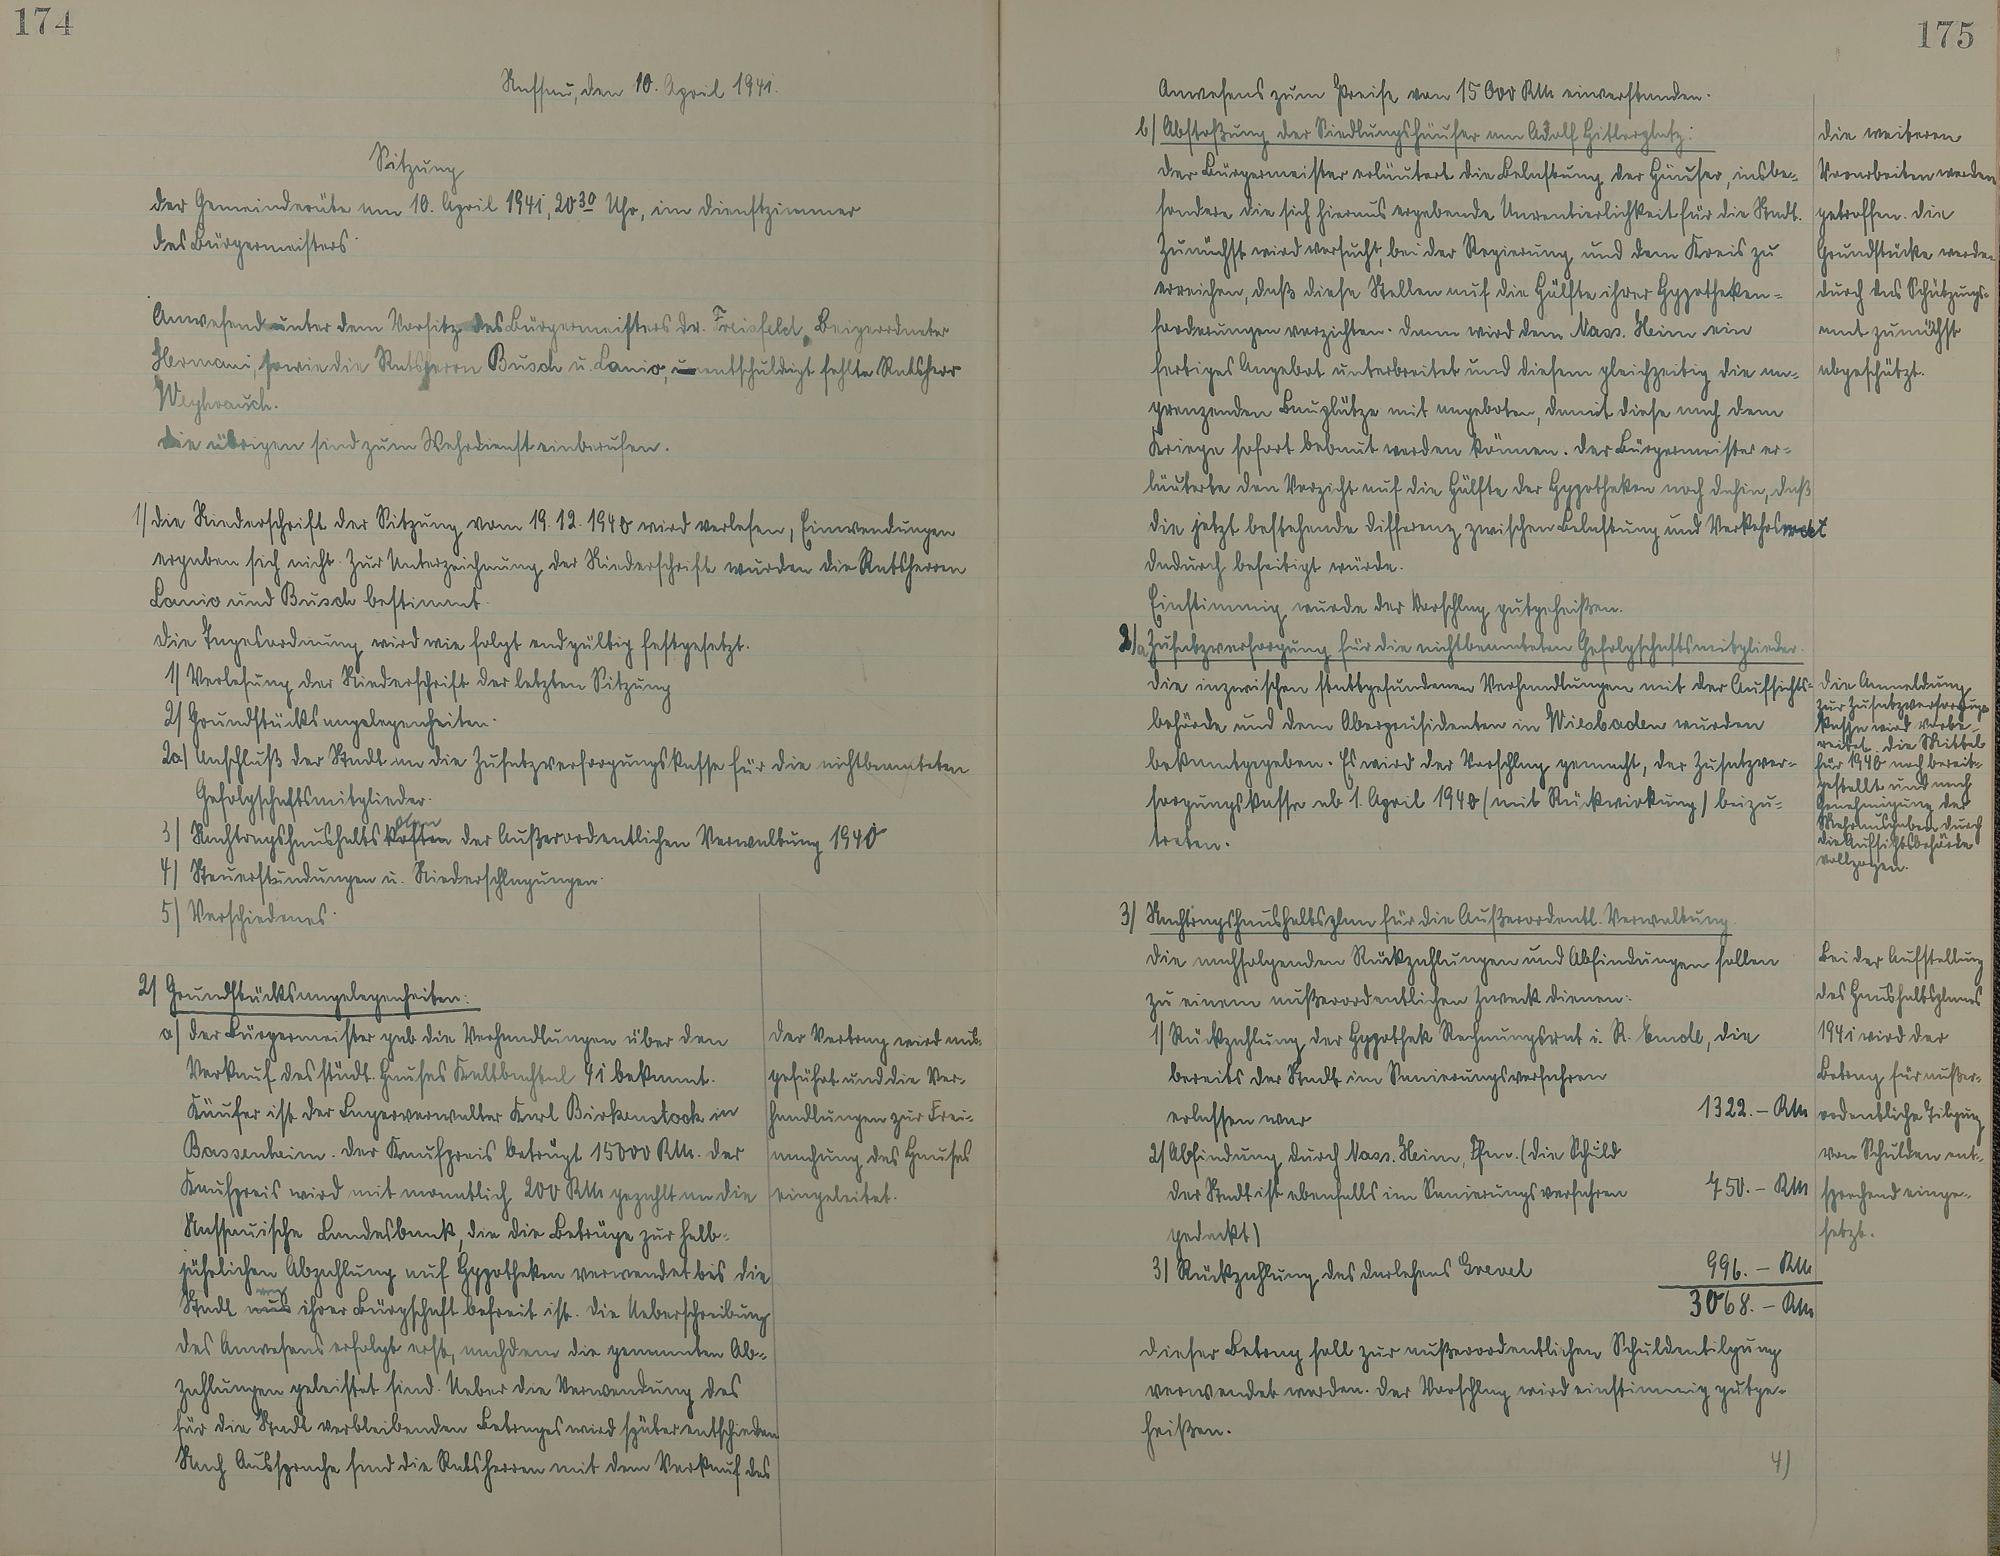 174
Nassau, den 10. April 1941.
Sitzung
der Gemeinderäte am 10. April 1941, 20 30 Uhr, im Dienstzimmer
des Bürgermeisters.
Anwesend unter dem Vorsitz des Bürgermeisters Dr. Freisfeld, Beigeordneter
Hermani, sowie die Ratsherrn Busch u. Lanio, unentschuldigt fehlte Ratsherr
Weyhrauch.
Die übrigen sind zum Wehrdienst einberufen.
1) Die Niederschrift der Sitzung vom 19.12.1940 wird verlesen, Einwendungen
ergaben sich nicht. Zur Unterzeichnung der Niederschrift wurden die Ratsherren
Lanio und Busch bestimmt.
Die Tagesordnung wird wie folgt endgültig festgesetzt.
1) Verlesung der Niederschrift der letzten Sitzung
2) Grundstücksangelegenheiten.
2a) Anschluß der Stadt an die Zusatzversorgungskasse für die nichtbeamteten
Gefolgschaftsmitglieder.
plan
3) Nachtragshaushaltskosten der Außerordentlichen Verwaltung 1940
4) Steuerstundungen u. Niederschlagungen.
5) Verschiedenes.
2) Grundstücksangelegenheiten:
a) Der Bürgermeister gab die Verhandlungen über den
Verkauf des städt. Hauses Kaltbachtal 41 bekannt.
Käufer ist der Lagerverwalter Karl Birkenstock in
Bassenheim. Der Kaufpreis beträgt 15000 RM. Der
Kaufpreis wird mit monatlich 200 RM gezahlt an die
Nassauische Landesbank, die die Beträge zur halb-
jährlichen Abzahlung auf Hypotheken verwendet bis die
Stadt aus ihrer Bürgschaft befreit ist. Die Ueberschreibung
des Anwesens erfolgt erst, nachdem die genannten Ab-
zahlungen geleistet sind. Ueber die Verwendung des
für die Stadt verbleibenden Betrages wird später entschieden
Nach Aussprache sind die Ratsherren mit dem Verkauf des
Der Vertrag wird aus-
geführt und die Ver-
handlungen zur Frei-
machung des Hauses
eingeleitet.
175
Anwesens zum Preise von 15000 RM einverstanden.
b) Abstoßung der Siedlungshäuser am Adolf Hitlerplatz:
Der Bürgermeister erläutert die Belastung der Häuser, insbe-
sondere die sich hieraus ergebende Unrentierlichkeit für die Stadt.
Zunächst wird versucht, bei der Regierung und dem Kreis zu
erreichen, daß diese Stellen auf die Hälfte ihrer Hypotheken-
forderungen verzichten. Dann wird dem Nass. Heim ein
fertiges Angebot unterbreitet und diesem gleichzeitig die an-
grenzenden Bauplätze mit angeboten, damit diese nach dem
Kriege sofort bebaut werden können. Der Bürgermeister er-
läuterte den Verzicht auf die Hälfte der Hypotheken noch dahin, daß
die jetzt bestehende Differenz zwischen Belastung und Verkehrswert
dadurch beseitigt würde.
Einstimmig wurde der Vorschlag gutgeheißen.
Die weiteren
Vorarbeiten werden
getroffen. Die
Grundstücke werden
durch das Schätzungs-
amt zunächst
abgeschätzt.
2)a Zusatzversorgung für die nichtbeamteten Gefolgschaftsmitglieder.
Die inzwischen stattgefundenen Verhandlungen mit der Aufsichts-
behörde und dem Oberpräsidenten in Wiesbaden wurden
bekanntgegeben. Es wird der Vorschlag gemacht, der Zusatzver-
sorgungskasse ab 1. April 1940 (mit Rückwirkung) beizu-
treten.
Die Anmeldung
zur Zusatzversorgungs-
kasse wird vorbe-
reitet. Die Mittel
für 1940 noch bereit-
gestellt und nach
Genehmigung der
Mehrausgaben durch
die Aufsichtsbehörde
vollzogen.
3) Nachtragshaushaltsplan für die Außerordentl. Verwaltung.
Die nachfolgenden Rückzahlungen und Abfindungen sollen
zu einem außerordentlichen Zweck dienen:
1) Rückzahlung der Hypothek Rechnungsrat i. R. Emde, die
bereits der Stadt im Sanierungsverfahren
erlassen war 1322.- RM
2) Abfindung durch Nass. Heim, Ffm. (die Schuld
der Stadt ist ebenfalls im Sanierungsverfahren 750.- RM
gedeckt)
3) Rückzahlung des Darlehens Grevel 996.- RM
3068.- RM
Dieser Betrag soll zur außerordentlichen Schuldentilgung
verwendet werden. Der Vorschlag wird einstimmig gutge-
heißen.
4)
Bei der Aufstellung
des Haushaltsplanes
1941 wird der
Betrag für außer-
ordentliche Tilgung
von Schulden ent-
sprechend einge-
setzt.